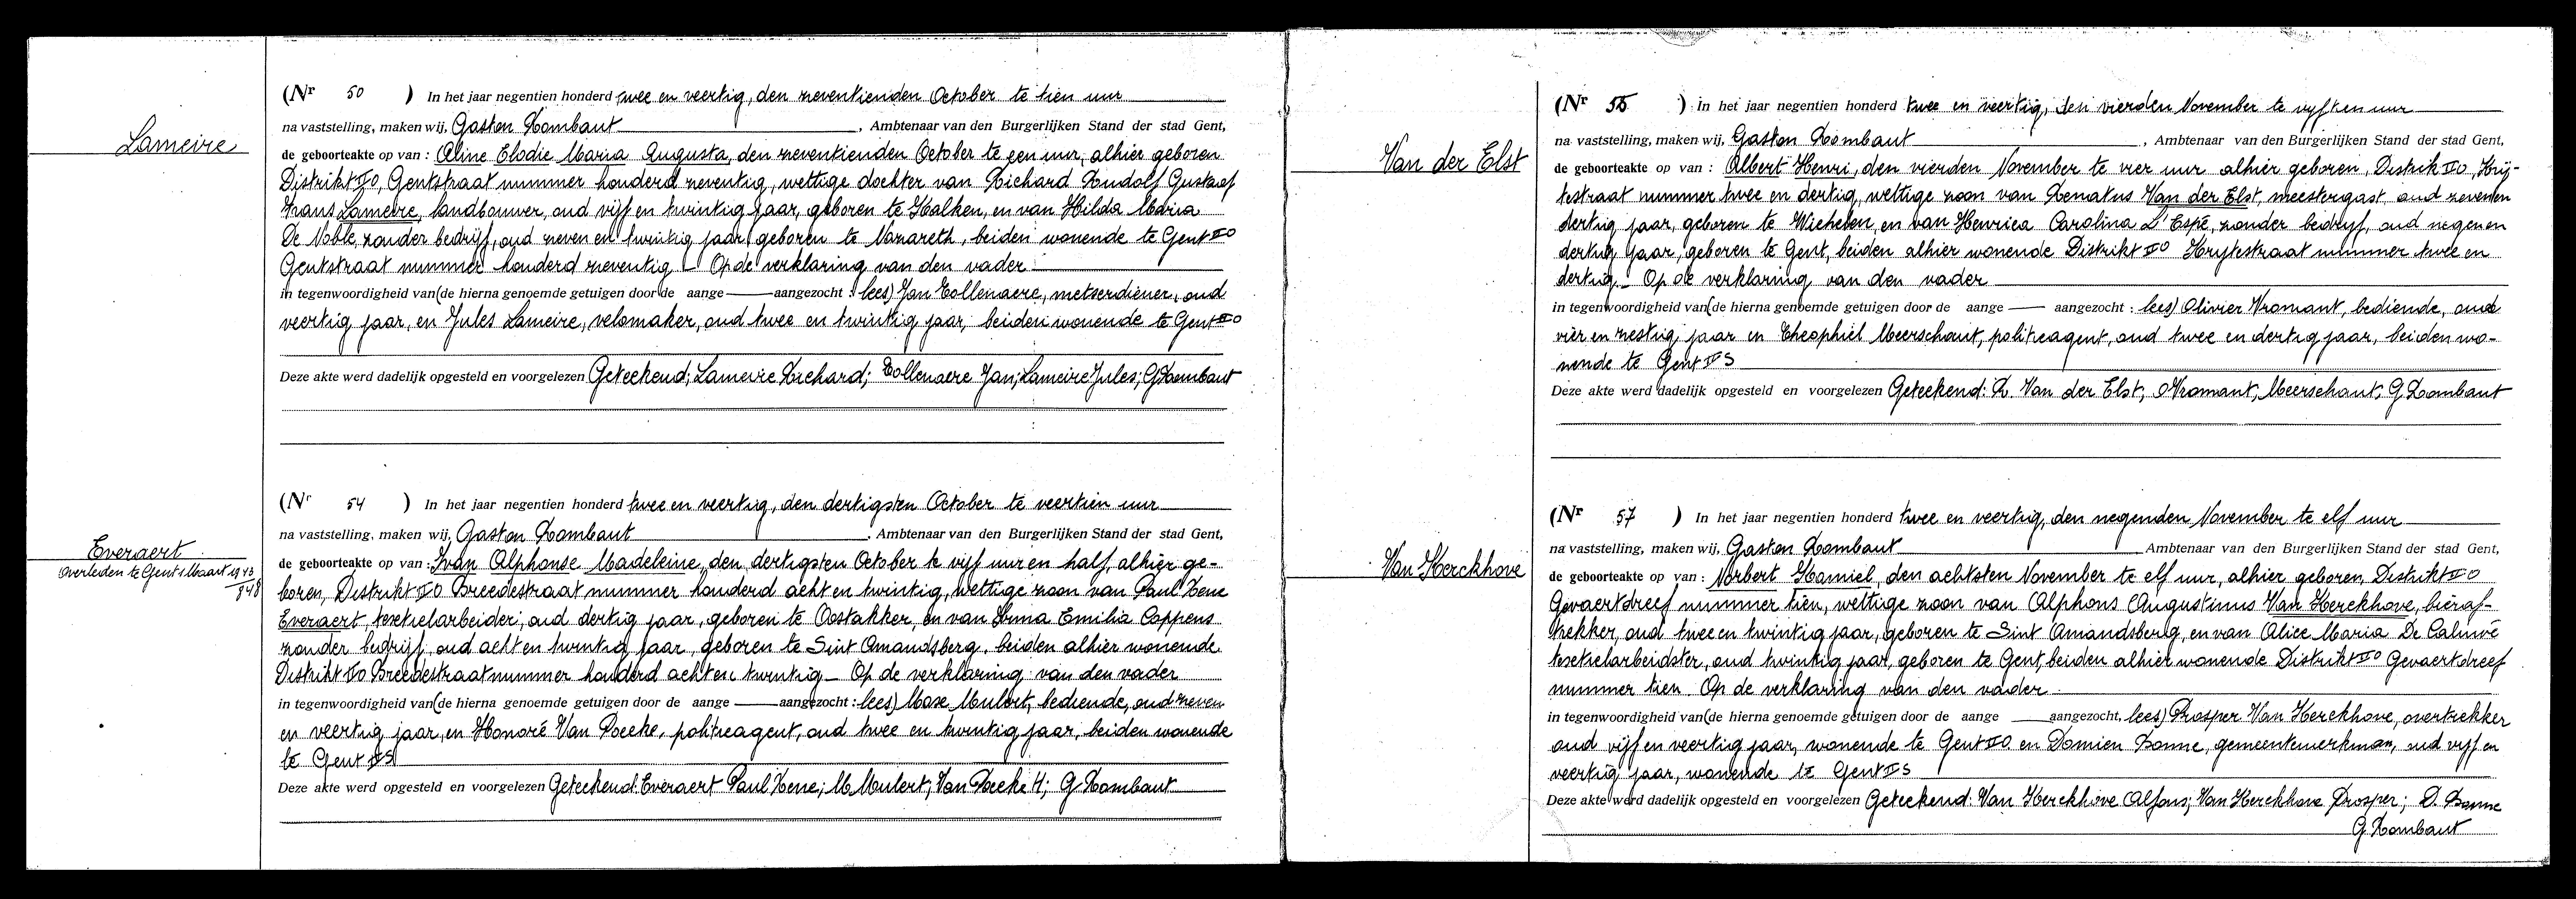 Lameire
(Nr 50 ) In het jaar negentien honderd twee en veertig, den zeventienden October te tien uur
na vaststelling, maken wij, Gaston Rombaut, Ambtenaar van den Burgerlijken Stand der stad Gent,
de geboorteakte op van : Aline Elodie Maria Augusta, den zeventienden October te een uur, alhier geboren
Distrikt II O, Gentstraat nummer honderd zeventig, wettige dochter van Richard Rudolf Gustaaf
Frans Lameire, landbouwer, oud vijf en twintig jaar, geboren te Kalken, en van Hilda Maria
De Noble, zonder bedrijf, oud zeven en twintig jaar, geboren te Nazareth, beiden wonende te Gent II O
Gentstraat nummer honderd zeventig _ Op de verklaring van den vader
in tegenwoordigheid van (de hierna genoemde getuigen door de aange aangezocht : lees) Jan Collenaere, metserdiener, oud
veertig jaar, en Jules Lameire, velomaker, oud twee en twintig jaar, beiden wonende te Gent II O
Deze akte werd dadelijk opgesteld en voorgelezen Geteekend; Lameire Richard; Collenaere Jan; Lameire Jules; G Rombaut
Everaert
Overleden te Gent 1 Maart 1943
848
(Nr 54 ) In het jaar negentien honderd twee en veertig, den dertigsten October te veertien uur
na vaststelling, maken wij, Gaston Rombaut, Ambtenaar van den Burgerlijken Stand der stad Gent,
de geboorteakte op van : Ivan Alphonse Madeleine, den dertigsten October te vijf uur en half, alhier ge-
boren, Distrikt II O Breedestraat nummer honderd acht en twintig, wettige zoon van Paul Rene
Everaert, textielarbeider, oud dertig jaar, geboren te Oostakker, en van Irma Emilia Coppens
zonder bedrijf, oud acht en twintig jaar, geboren te Sint Amandsberg, beiden alhier wonende
Distrikt II O Breedestraat nummer honderd acht en twintig _ Op de verklaring van den vader
in tegenwoordigheid van (de hierna genoemde getuigen door de aange aangezocht : lees) Mulert, bediende, oud zeven
en veertig jaar, en Honoré Van Poeke, politieagent, oud twee en twintig jaar, beiden wonende
te Gent II S
Deze akte werd opgesteld en voorgelezen Geteekend: Everaert Paul Rene; M. Mulert; Van Poeke H; G. Rombaut
Van der Elst
(Nr 55 ) In het jaar negentien honderd twee en veertig, den vierden November te vijftien uur
na vaststelling, maken wij, Gaston Rombaut, Ambtenaar van den Burgerlijken Stand der stad Gent,
de geboorteakte op van : Albert Henri, den vierden November te vier uur alhier geboren, Distrik II O, Krij-
testraat nummer twee en dertig, wettige zoon van Renatus Van der Elst, meestergast, oud zeven en
dertig jaar, geboren te Wichelen, en van Henrica Carolina L'Espé, zonder bedrijf, oud negen en
dertig jaar, geboren te Gent, beiden alhier wonende Distrikt II O Krijtestraat nummer twee en
dertig _ Op de verklaring van den vader
in tegenwoordigheid van (de hierna genoemde getuigen door de aange aangezocht : lees) Olivier Vromant, bediende, oud
vier en zestig jaar en Theophiel Meerschaut, politieagent, oud twee en dertig jaar, beiden wo-
nende te Gent II S
Deze akte werd dadelijk opgesteld en voorgelezen Geteekend: R. Van der Elst; O Vromant; Meerschaut; G Rombaut
Van Kerckhove
(Nr 57 ) In het jaar negentien honderd twee en veertig, den negenden November te elf uur
na vaststelling, maken wij, Gaston Rombaut Ambtenaar van den Burgerlijken Stand der stad Gent,
de geboorteakte op van : Norbert Kamiel, den achtsten November te elf uur, alhier geboren, Distrikt II O
Gevaertdreef nummer tien, wettige zoon van Alphons Augustinus Van Kerckhove, bieraf-
trekker, oud twee en twintig jaar, geboren te Sint Amandsberg, en van Alice Maria De Caluwé
textielarbeidster, oud twintig jaar, geboren te Gent, beiden alhier wonende Distrikt II O Gevaertdreef
nummer tien. Op de verklaring van den vader
in tegenwoordigheid van (de hierna genoemde getuigen door de aange aangezocht, lees) Prosper Van Kerckhove, overtrekker
oud vijf en veertig jaar, wonende te Gent II O en Damien Bonne, gemeentewerkman, oud vijf en
veertig jaar, wonende te Gent II S
Deze akte werd dadelijk opgesteld en voorgelezen Geteekend: Van Kerckhove Alfons; Van Kerckhove Prosper; D. Bonne
G. Rombaut